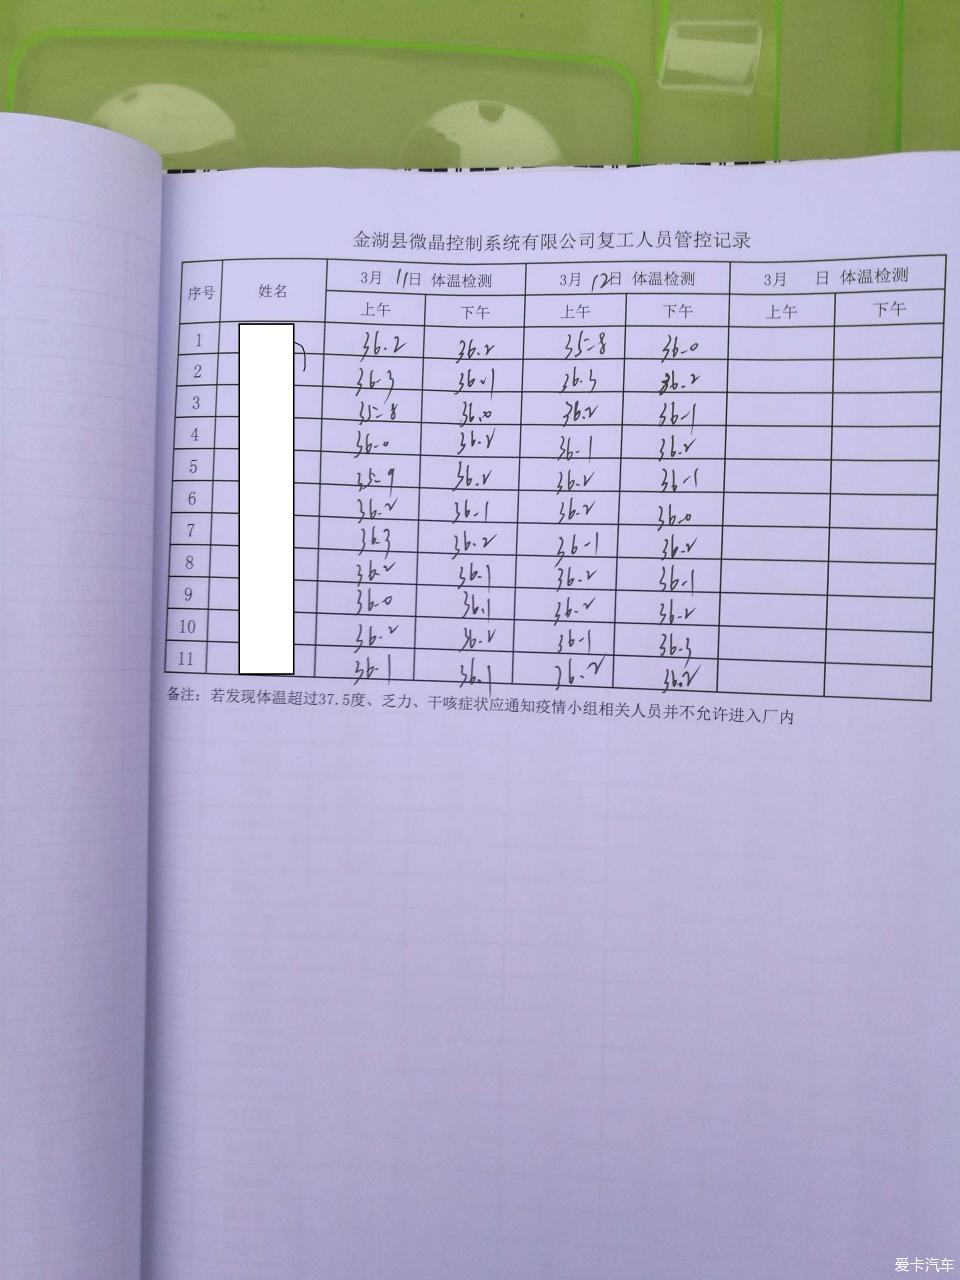 金湖县微晶控制系统有限公司复工人员管控记录
序号 姓名 3月 11日 体温检测 3月 12日 体温检测 3月 日 体温检测
上午 下午 上午 下午 上午 下午
1 36.2 36.2 35.8 36.0
2 36.3 36.1 36.3 36.2
3 35.8 36.0 36.2 36.1
4 36.0 36.2 36.1 36.2
5 35.9 36.2 36.2 36.1
6 36.2 36.1 36.2 36.0
7 36.3 36.2 36.1 36.2
8 36.2 36.1 36.2 36.1
9 36.0 36.1 36.2 36.2
10 36.2 36.2 36.1 36.3
11 36.1 36.1 36.2 36.2
备注：若发现体温超过37.5度、乏力、干咳症状应通知疫情小组相关人员并不允许进入厂内
爱卡汽车